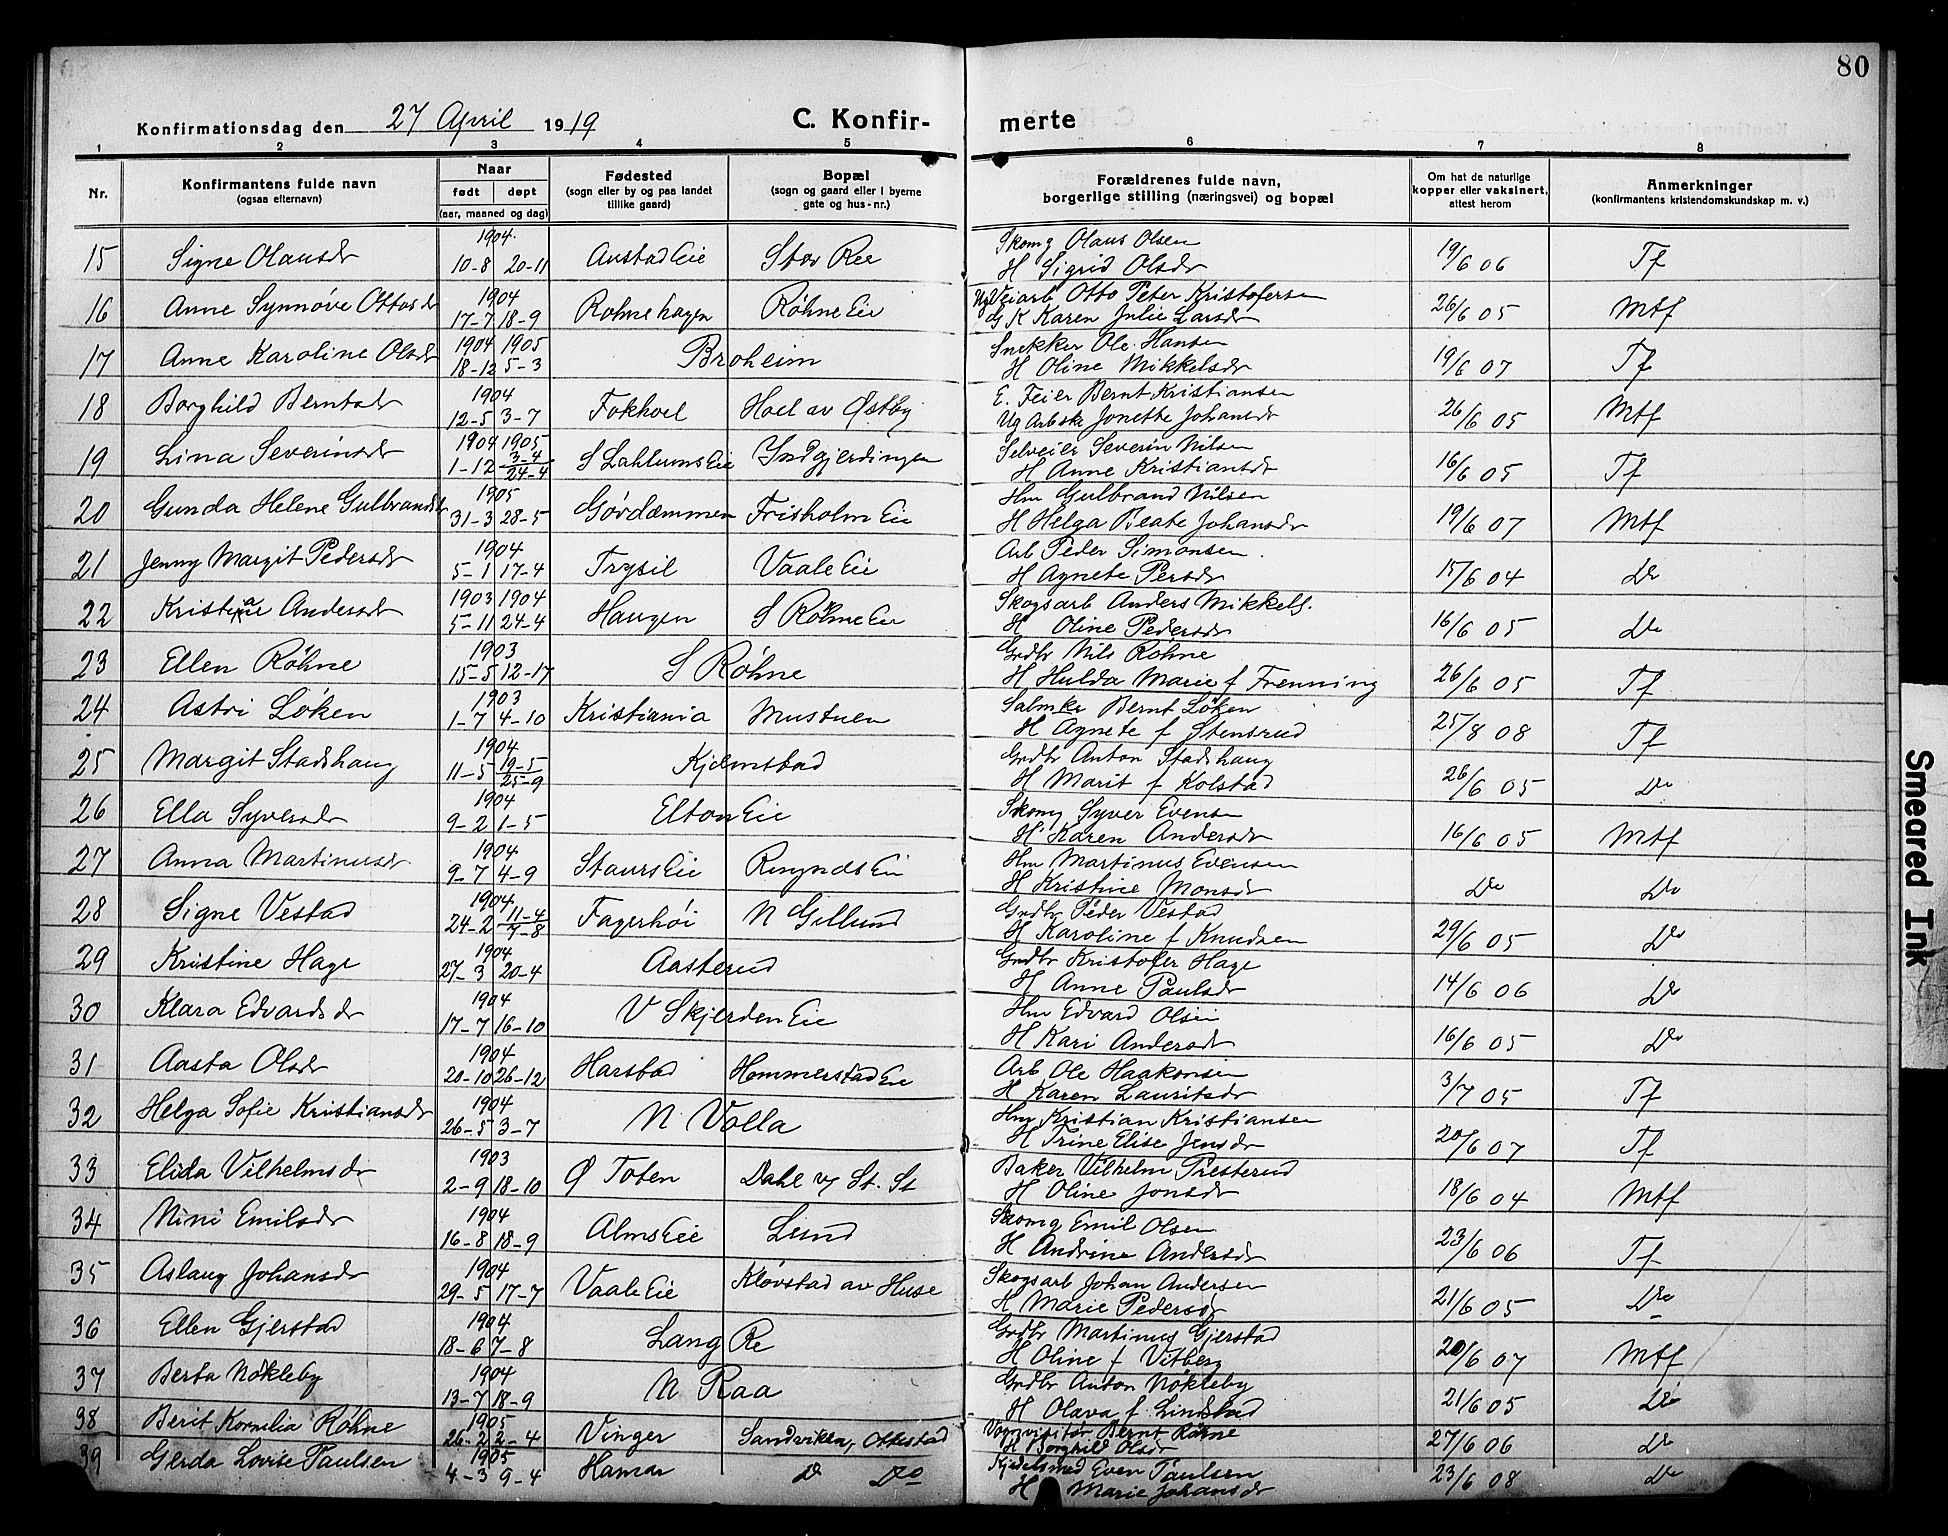 80
Konfirmationsdag den 27 April 1919 C. Konfir- merte
1 2 3 4 5 6 7 8
Nr. Konfirmantens fulde navn (ogsaa efternavn) Naar født døpt (aar, maaned og dag) Fødested (sogn eller by og paa landet tillike gaard) Bopæl (sogn og gaard eller i byerne gate og hus-nr.) Forældrenes fulde navn, borgerlige stilling (næringsvei) og bopæl Om hat de naturlige kopper eller vaksinert, attest herom Anmerkninger (konfirmantens kristendomskundskap m. v.)
1904 Skomg Olaus Olsen
15 Signe Olausdr 10-8 20-11 Austad Eie Stor Ree H Sigrid Olsdr 19/6 06 Tf
1904 Ug Veiarb Otto Peter Kristofersen
16 Anne Synnøve Ottosdr 17-7 18-9 Rohnehagen Røhne Eie G K Karen Julie Larsdr 26/6 05 Mtf
1904 1905 Snekker Ole Hansen
17 Anne Karoline Olsdr 18-12 5-3 Broheim H Oline Mikkelsdr 19/6 07 Tf
1904 E. Feier Bernt Kristiansen
18 Borghild Berntsdr 12-5 3-7 Fokhoel Hoel av Østby Ug Arbske Jonette Johansdr 26/6 05 Mtf
1904 1905 Selveier Severin Nilsen
19 Lina Severinsdr 1-12 3-4 24-4 S Lahlums Eie Indgjerdingen H Anne Kristiansdr 16/6 05 Tf
1905 Hm Gulbrand Nilsen
20 Gunda Helene Gulbrandsdr 31-3 28-5 Gørdæmmen Frisholm Eie H Helga Beate Johansdr 19/6 07 Mtf
1904 Arb Peder Simonsen
21 Jenny Margit Pedersdr 5-1 17-4 Trysil Vaale Eie H Agnete Persdr 15/6 04 Do
1903 1904 Skogsarb Anders Mikkels.
22 Kristine a Andersdr 5-11 24-4 Haugen S Røhne Eie H Oline Pedersdr 16/6 05 Do
1903 Grdbr Nils Røhne
23 Ellen Røhne 15-5 12-17 S Røhne H Hulda Marie f Frenning 26/6 05 Tf
1903 Salmkr Bernt Løken
24 Astri Løken 1-7 4-10 Kristiania Mustuen H Agnete f Stensrud 25/8 08 Tf
1904 Grdbr Anton Stadshaug
25 Margit Stadshaug 11-5 19-5 25-9 Kjelmstad H Marit f Kolstad 26/6 05 Do
1904 Skomg Syver Evensen
26 Ella Syversdr 9-2 1-5 Elton Eie H Karen Andersdr 16/6 05 Mtf
1904 Hm Martinus Evensen
27 Anna Martinusdr 9-7 4-9 Staurs Eie Ringnds Eie H Kristine Monsdr Do Do
1904 Grdbr Peder Vestad
28 Signe Vestad 24-2 11-4 7-8 Fagerhøi N Gillund H Karoline f Knudsen 29/6 05 Do
1904 Grdbr Kristofer Hage
29 Kristine Hage 27-3 20-4 Aasterud H Anne Paulsdr 14/6 06 Do
1904 Hm Edvard Olsen
30 Klara Edvardsdr 17-7 16-10 V Skjerden Eie H Kari Andersdr 16/6 05 Do
1904 Arb Ole Haakonsen
31 Aasta Olsdr 20-10 26-12 Harstad Hemmerstad Eie H Karen Lauritsdr 3/7 05 Tf
1904 Hm Kristian Kristiansen
32 Helga Sofie Kristiansdr 26-5 3-7 N Volla H Trine Elise Jensdr 20/6 07 Tf
1903 Baker Vilhelm Presterud
33 Elida Vilhelmsdr 2-9 18-10 Ø Toten Dahl v/ St. St H Oline Jonsdr 18/6 04 Mtf
1904 Skomg Emil Olsen
34 Nini Emilsdr 16-8 18-9 Alms Eie Lund H Andrine Andersdr 23/6 06 Tf
1904 Skogsarb Johan Andersen
35 Aslaug Johansdr 29-5 17-7 Vaale Eie Kløvstad av Huse H Marie Pedersdr 21/6 05 Do
1904 Grdbr Martinus Gjerstad
36 Ellen Gjerstad 18-6 7-8 Lang Re H Oline f Vitberg 20/6 07 Mtf
1904 Grdbr Anton Nøkleby
37 Berta Nøkleby 13-7 18-9 N Raa H Olava f Lindstad 21/6 05 Do
1905 Vognvisitør Bernt Røhne
38 Berit Kornelia Røhne 26-2 2-4 Vinger Sandviken, Ottestad H Borghild Olsdr 27/6 06 Do
1905 Kjedelsmed Even Paulsen
39 Gerda Lovise Paulsen 4-3 9-4 Hamar Do Do H Marie Johansdr 23/6 08 Do
Smeared Ink